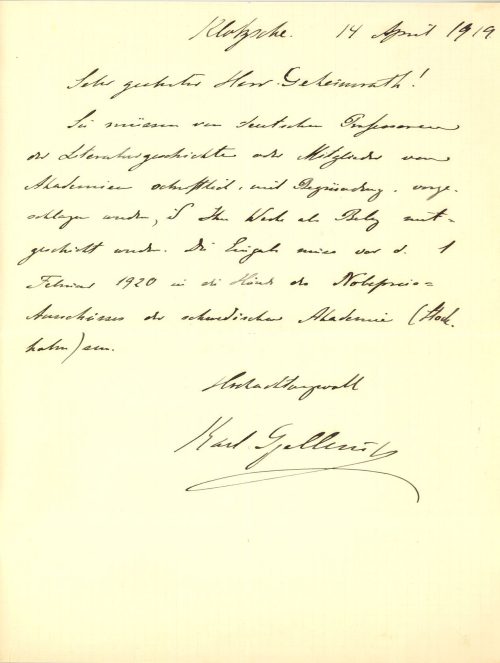 Klotzsche. 14 April 1919
Sehr geehrter Herr Geheimrath!
Sie müssen von deutschen Professoren
der Literaturgeschichte oder Mitglieder von
Akademien schriftlich, mit Begründung, vorge-
schlagen werden, & Ihr Werk als Beleg mit-
geschickt werden. Die Eingabe muss vor d. 1
Februar 1920 in die Hände des Nobelpreis=
Ausschusses der schwedischen Akademie (Stock-
holm) sein.
Hochachtungsvoll
Karl Gjellerup